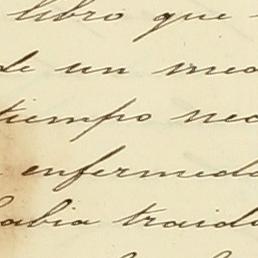 libro que
de un med
tiempo nec
enfermeda
abia traid